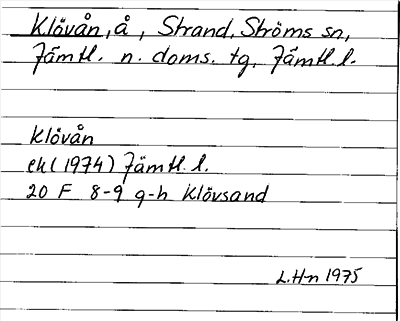 Klövån, å, Strand, Ströms sn,
Jämtl. n. doms. tg, Jämtl l.
Klövån
ek (1974) Jämtl. l.
20 F 8-9 g-h Klövsand
L.H-n 1975